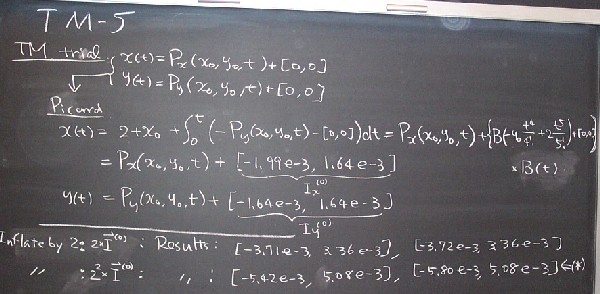 TM-5
TM trial { x(t) = Px(x0, y0, t) + [0,0]
y(t) = Py(x0, y0, t) + [0,0]
Picard
x(t) = 2 + x0 + ∫0^t (-Py(x0, y0, t) - [0,0]) dt = Px(x0, y0, t) +
= Px(x0, y0, t) + [-1.99e-3, 1.64e-3]
× B(t)
Ix^(0)
y(t) = Py(x0, y0, t) + [-1.64e-3, 1.64e-3]
Iy^(0)
Inflate by 2: 2×I^(0) : Results: [-3.71e-3, 3.36e-3], [-3.72e-3, 3.36e-3]
〃 : 2²×I^(0) : 〃 : [-5.42e-3, 5.08e-3], [-5.80e-3, 5.08e-3] ⇐(*)